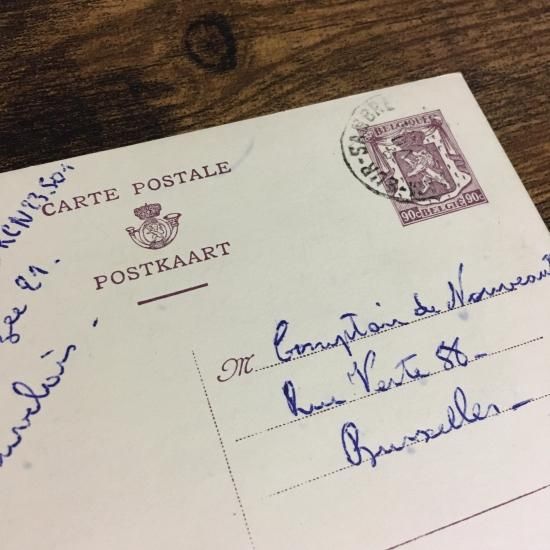 CARTE POSTALE
POSTKAART
BELGIQUE
90c BELGIË 90c
SUR-SAMBRE
M Comptoir de Nouveaut
Rue Verte 88-
Bruxelles-
21.